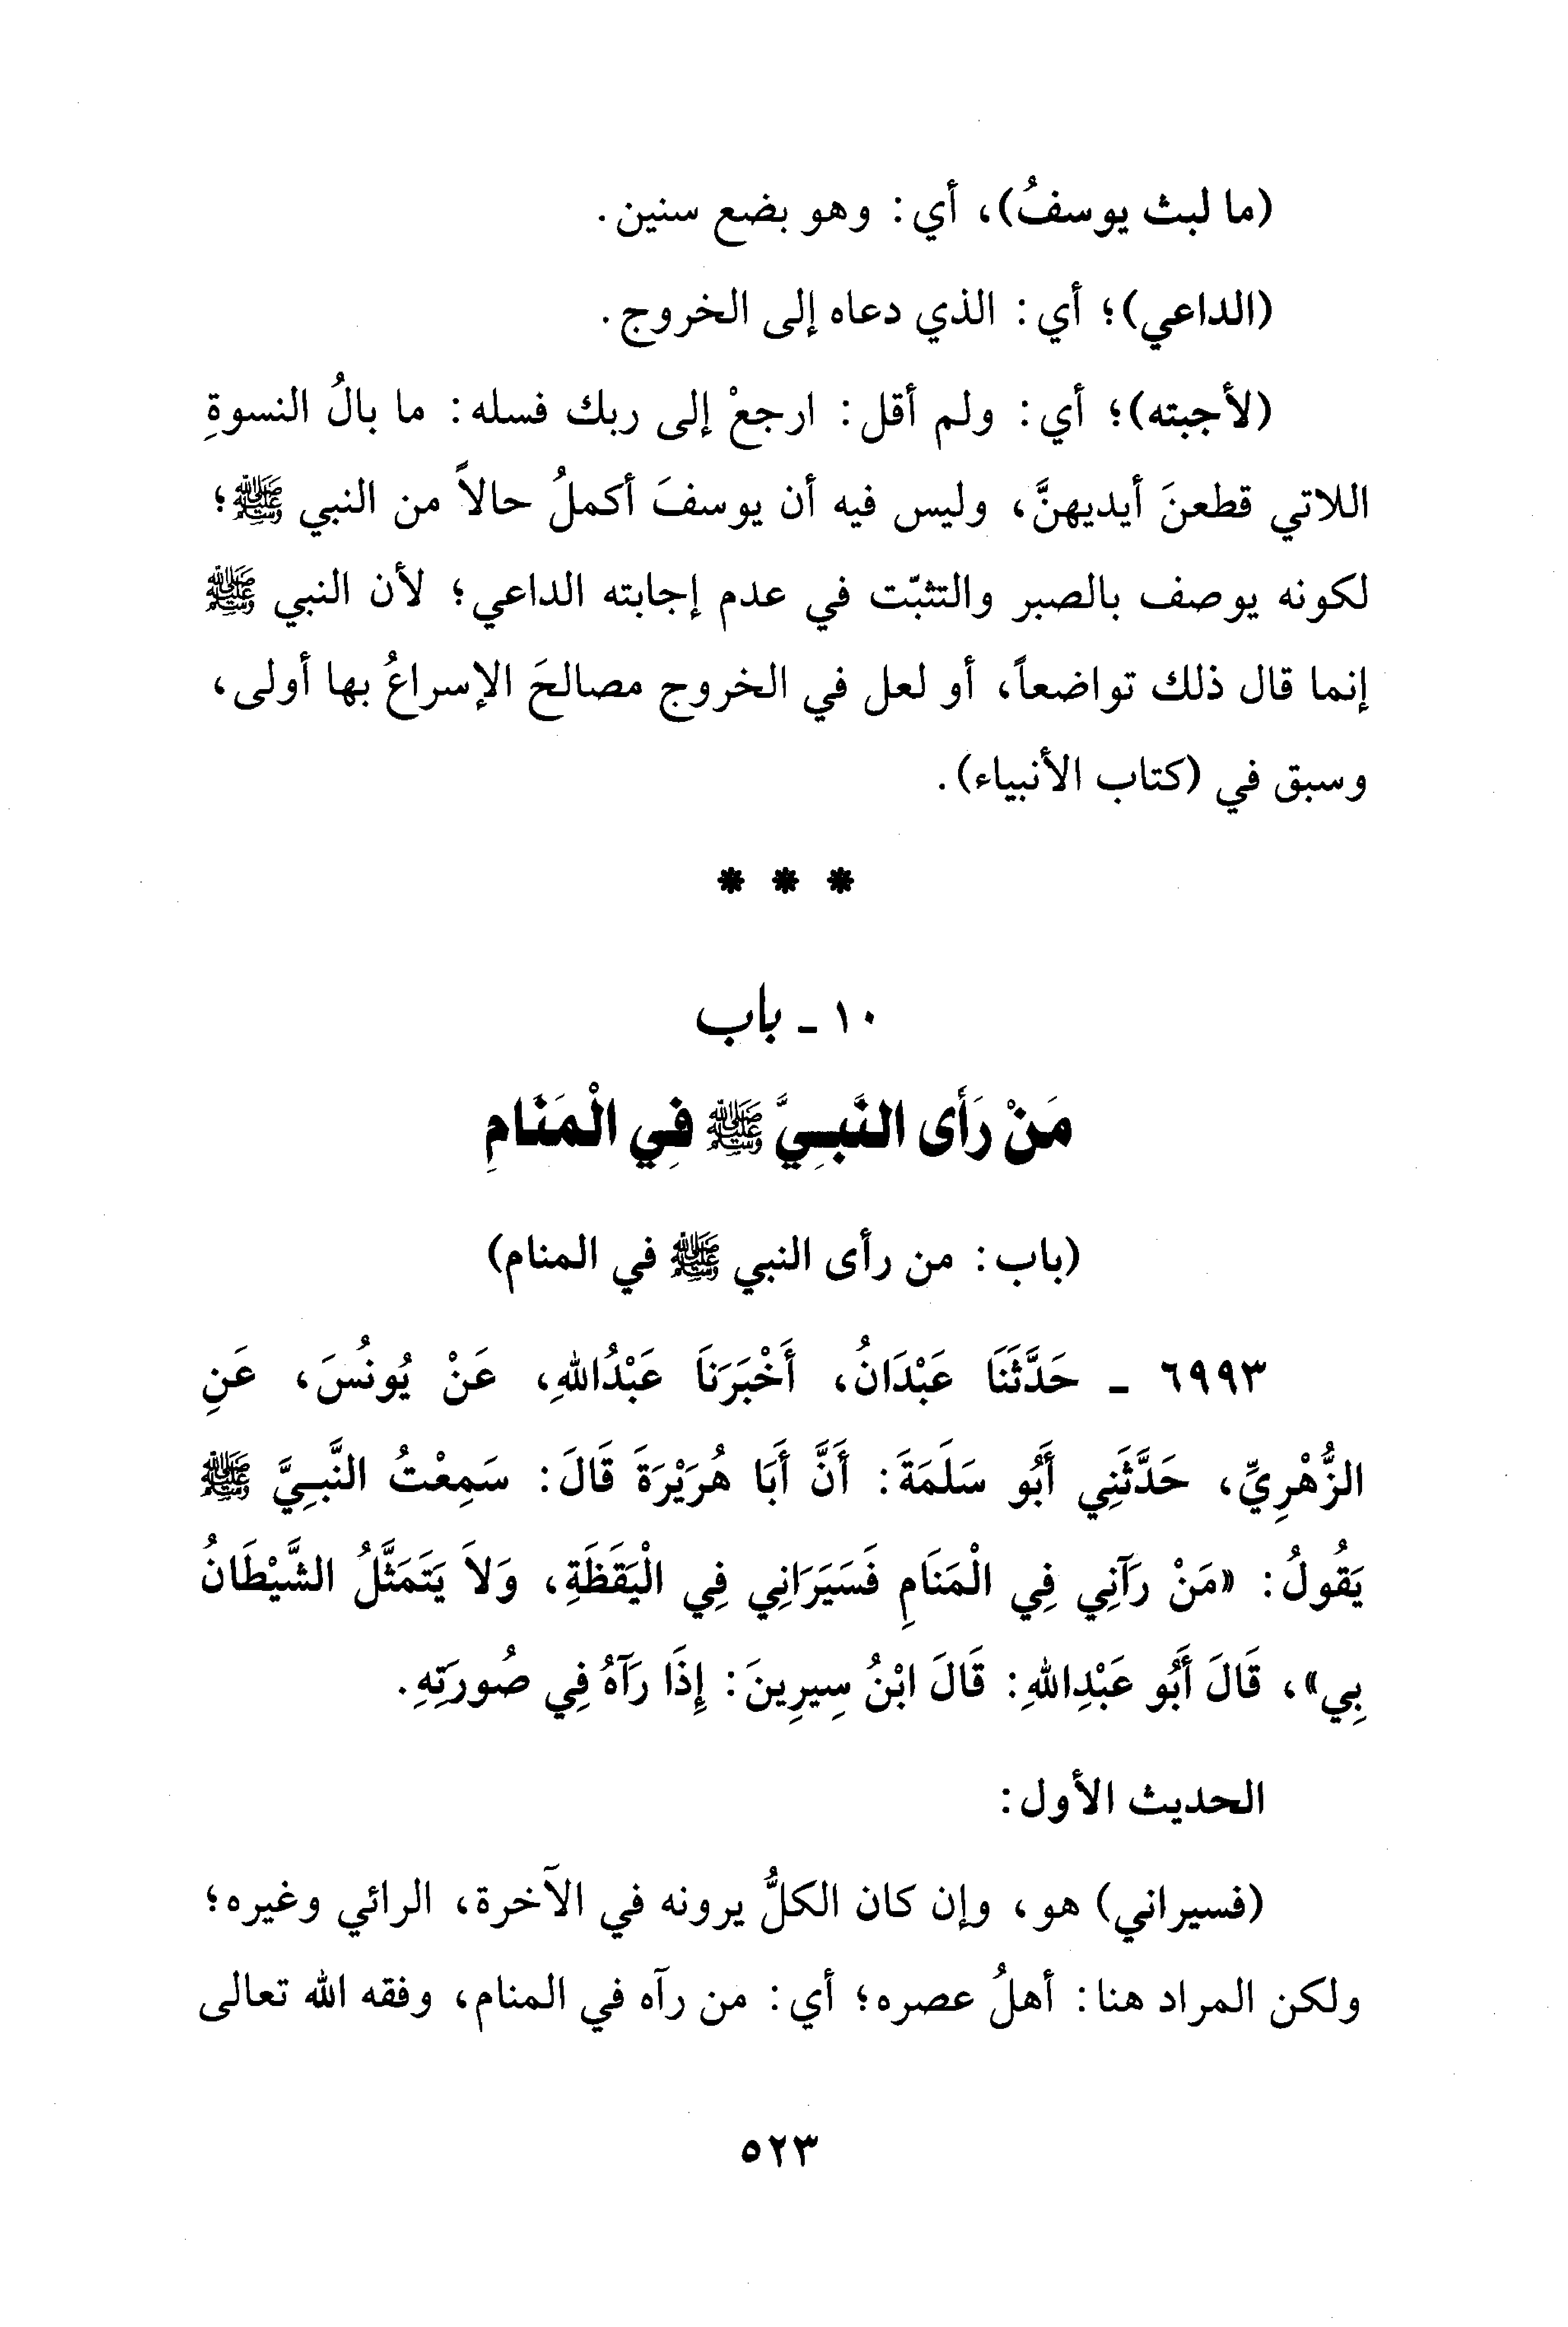 (ما لبث يوسفُ)، أي: وهو بضع سنين.
(الداعي)؛ أي: الذي دعاه إلى الخروج.
(لأجبته)؛ أي: ولم أقل: ارجعْ إلى ربك فسله: ما بالُ النسوةِ
اللاتي قطعنَ أيديهنَّ، وليس فيه أن يوسفَ أكملُ حالاً من النبي ﷺ؛
لكونه يوصف بالصبر والتثبّت في عدم إجابته الداعي؛ لأن النبي ﷺ
إنما قال ذلك تواضعاً، أو لعل في الخروج مصالحَ الإسراعُ بها أولى،
وسبق في (كتاب الأنبياء).
* * *
١٠ - باب
مَنْ رَأَى النَّبِيَّ ﷺ فِي الْمَنَامِ
(باب: من رأى النبي ﷺ في المنام)
٦٩٩٣ - حَدَّثَنَا عَبْدَانُ، أَخْبَرَنَا عَبْدُاللهِ، عَنْ يُونُسَ، عَنِ
الزُّهْرِيِّ، حَدَّثَنِي أَبُو سَلَمَةَ: أَنَّ أَبَا هُرَيْرَةَ قَالَ: سَمِعْتُ النَّبِيَّ ﷺ
يَقُولُ: «مَنْ رَآنِي فِي الْمَنَامِ فَسَيَرَانِي فِي الْيَقَظَةِ، وَلاَ يَتَمَثَّلُ الشَّيْطَانُ
بِي»، قَالَ أَبُو عَبْدِاللهِ: قَالَ ابْنُ سِيرِينَ: إِذَا رَآهُ فِي صُورَتِهِ.
الحديث الأول:
(فسيراني) هو، وإن كان الكلُّ يرونه في الآخرة، الرائي وغيره؛
ولكن المراد هنا: أهلُ عصره؛ أي: من رآه في المنام، وفقه الله تعالى
٥٢٣